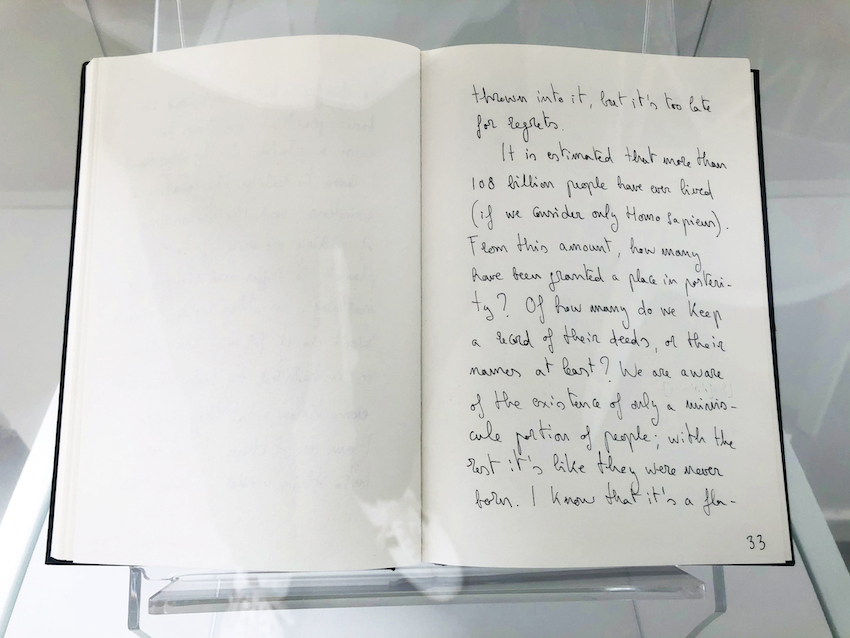 thrown into it, but it's too late
for regrets.
It is estimated that more than
108 billion people have ever lived
(if we consider only Homo Sapiens).
From this amount, how many
have been granted a place in posteri-
ty? Of how many do we keep
a record of their deeds, or their
names at least? We are aware
of the existence of only a minis-
cule portion of people; with the
rest it's like they were never
born. I know that it's a fla-
33